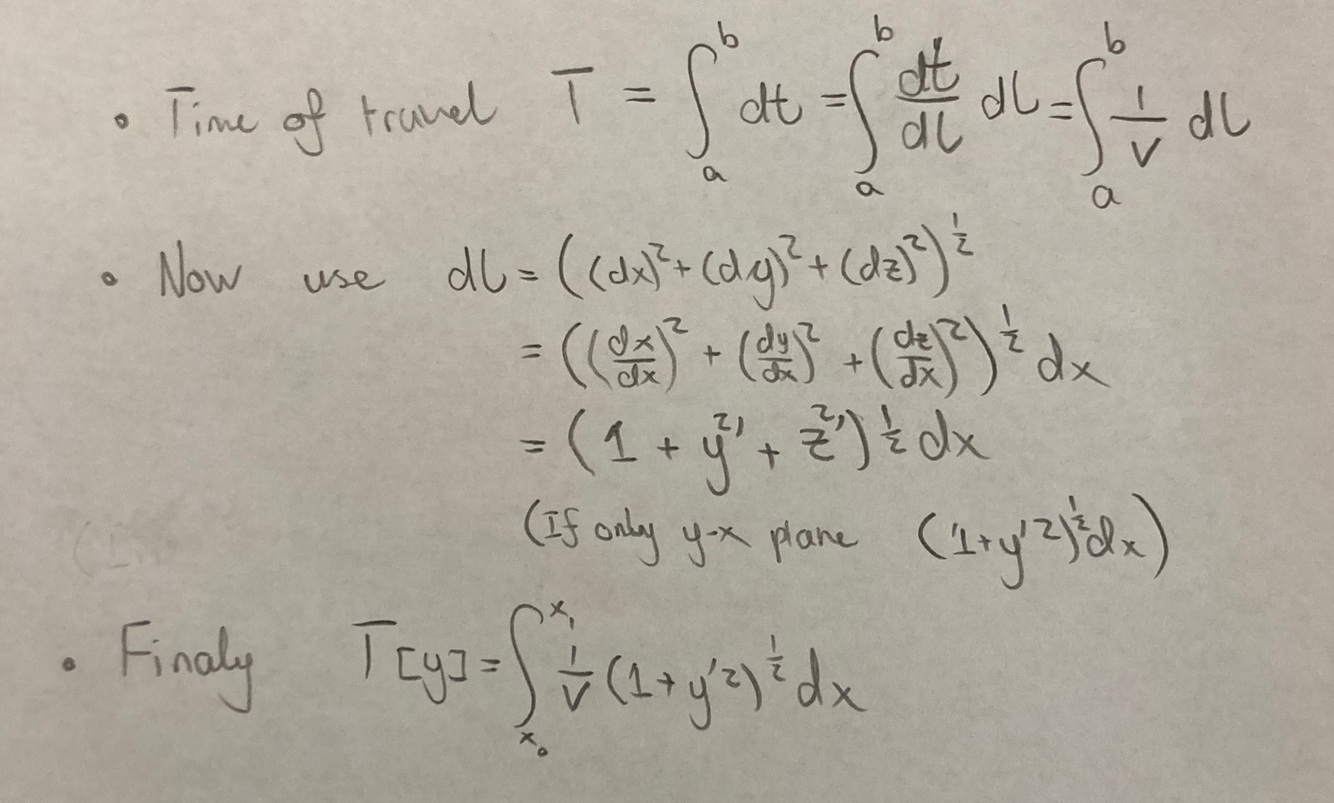 • Time of travel T = ∫ₐᵇ dt = ∫ₐᵇ dt/dl dl = ∫ₐᵇ 1/v dl
• Now use dl = ((dx)² + (dy)² + (dz)²)^½
= ((dx/dx)² + (dy/dx)² + (dz/dx)²)^½ dx
= (1 + y²′ + z²′)^½ dx
(If only y-x plane (1+y′²)^½ dx)
• Finaly T[y] = ∫ₓ₀ˣ₁ 1/v (1+y′²)^½ dx